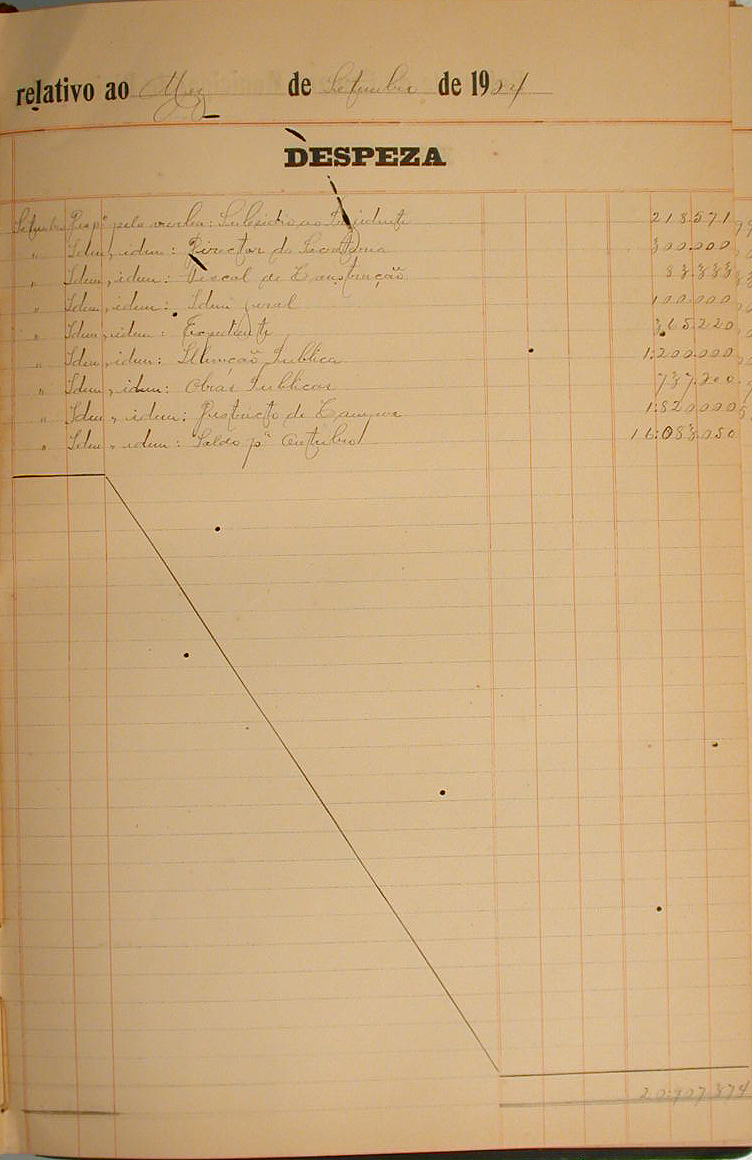 relativo ao Mez de Setembro de 1924
DESPEZA
Setembro Desp.ª pela verba: Subsidio ao Presidente 218.571
" Idem, idem: Director da Secretaria 300.000
" Idem, idem: Fiscal de 83.333
" Idem, idem: Idem geral 100.000
" Idem, idem: Expediente 365.220
" Idem, idem: Illuminação Publica 1:200.000
" Idem, idem: Obras Publicas 737.200
" Idem, idem: de 1:820.000
" Idem, idem: Saldo pª Outubro 16:083.050
20:907.374